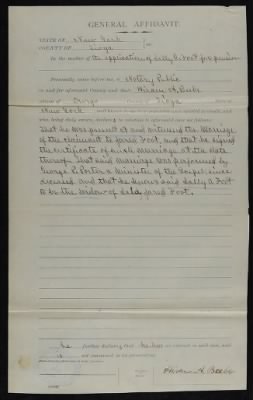 GENERAL AFFIDAVIT.
STATE OF New York
COUNTY OF Tioga ss:
In the matter of the application of Sally A Foot for pension
Personally came before me, a Notary Public
in and for aforesaid County and State, Hiram A. Beebe
citizen of Owego County of Tioga
New York
who, being duly sworn, declared in relation to aforesaid case as follows:
That he was present at and witnessed the marriage
of the claimant to Jared Foot, and that he signed
the certificate of such marriage at the date
thereof. That said marriage was performed by
George P. Porter a Minister of the Gospel, since
deceased. And that he knows said Sally A Foot
to be the widow of said Jared Foot.
he further declares that he has no interest in said case, and
is not concerned in its prosecution.
Hiram A. Beebe